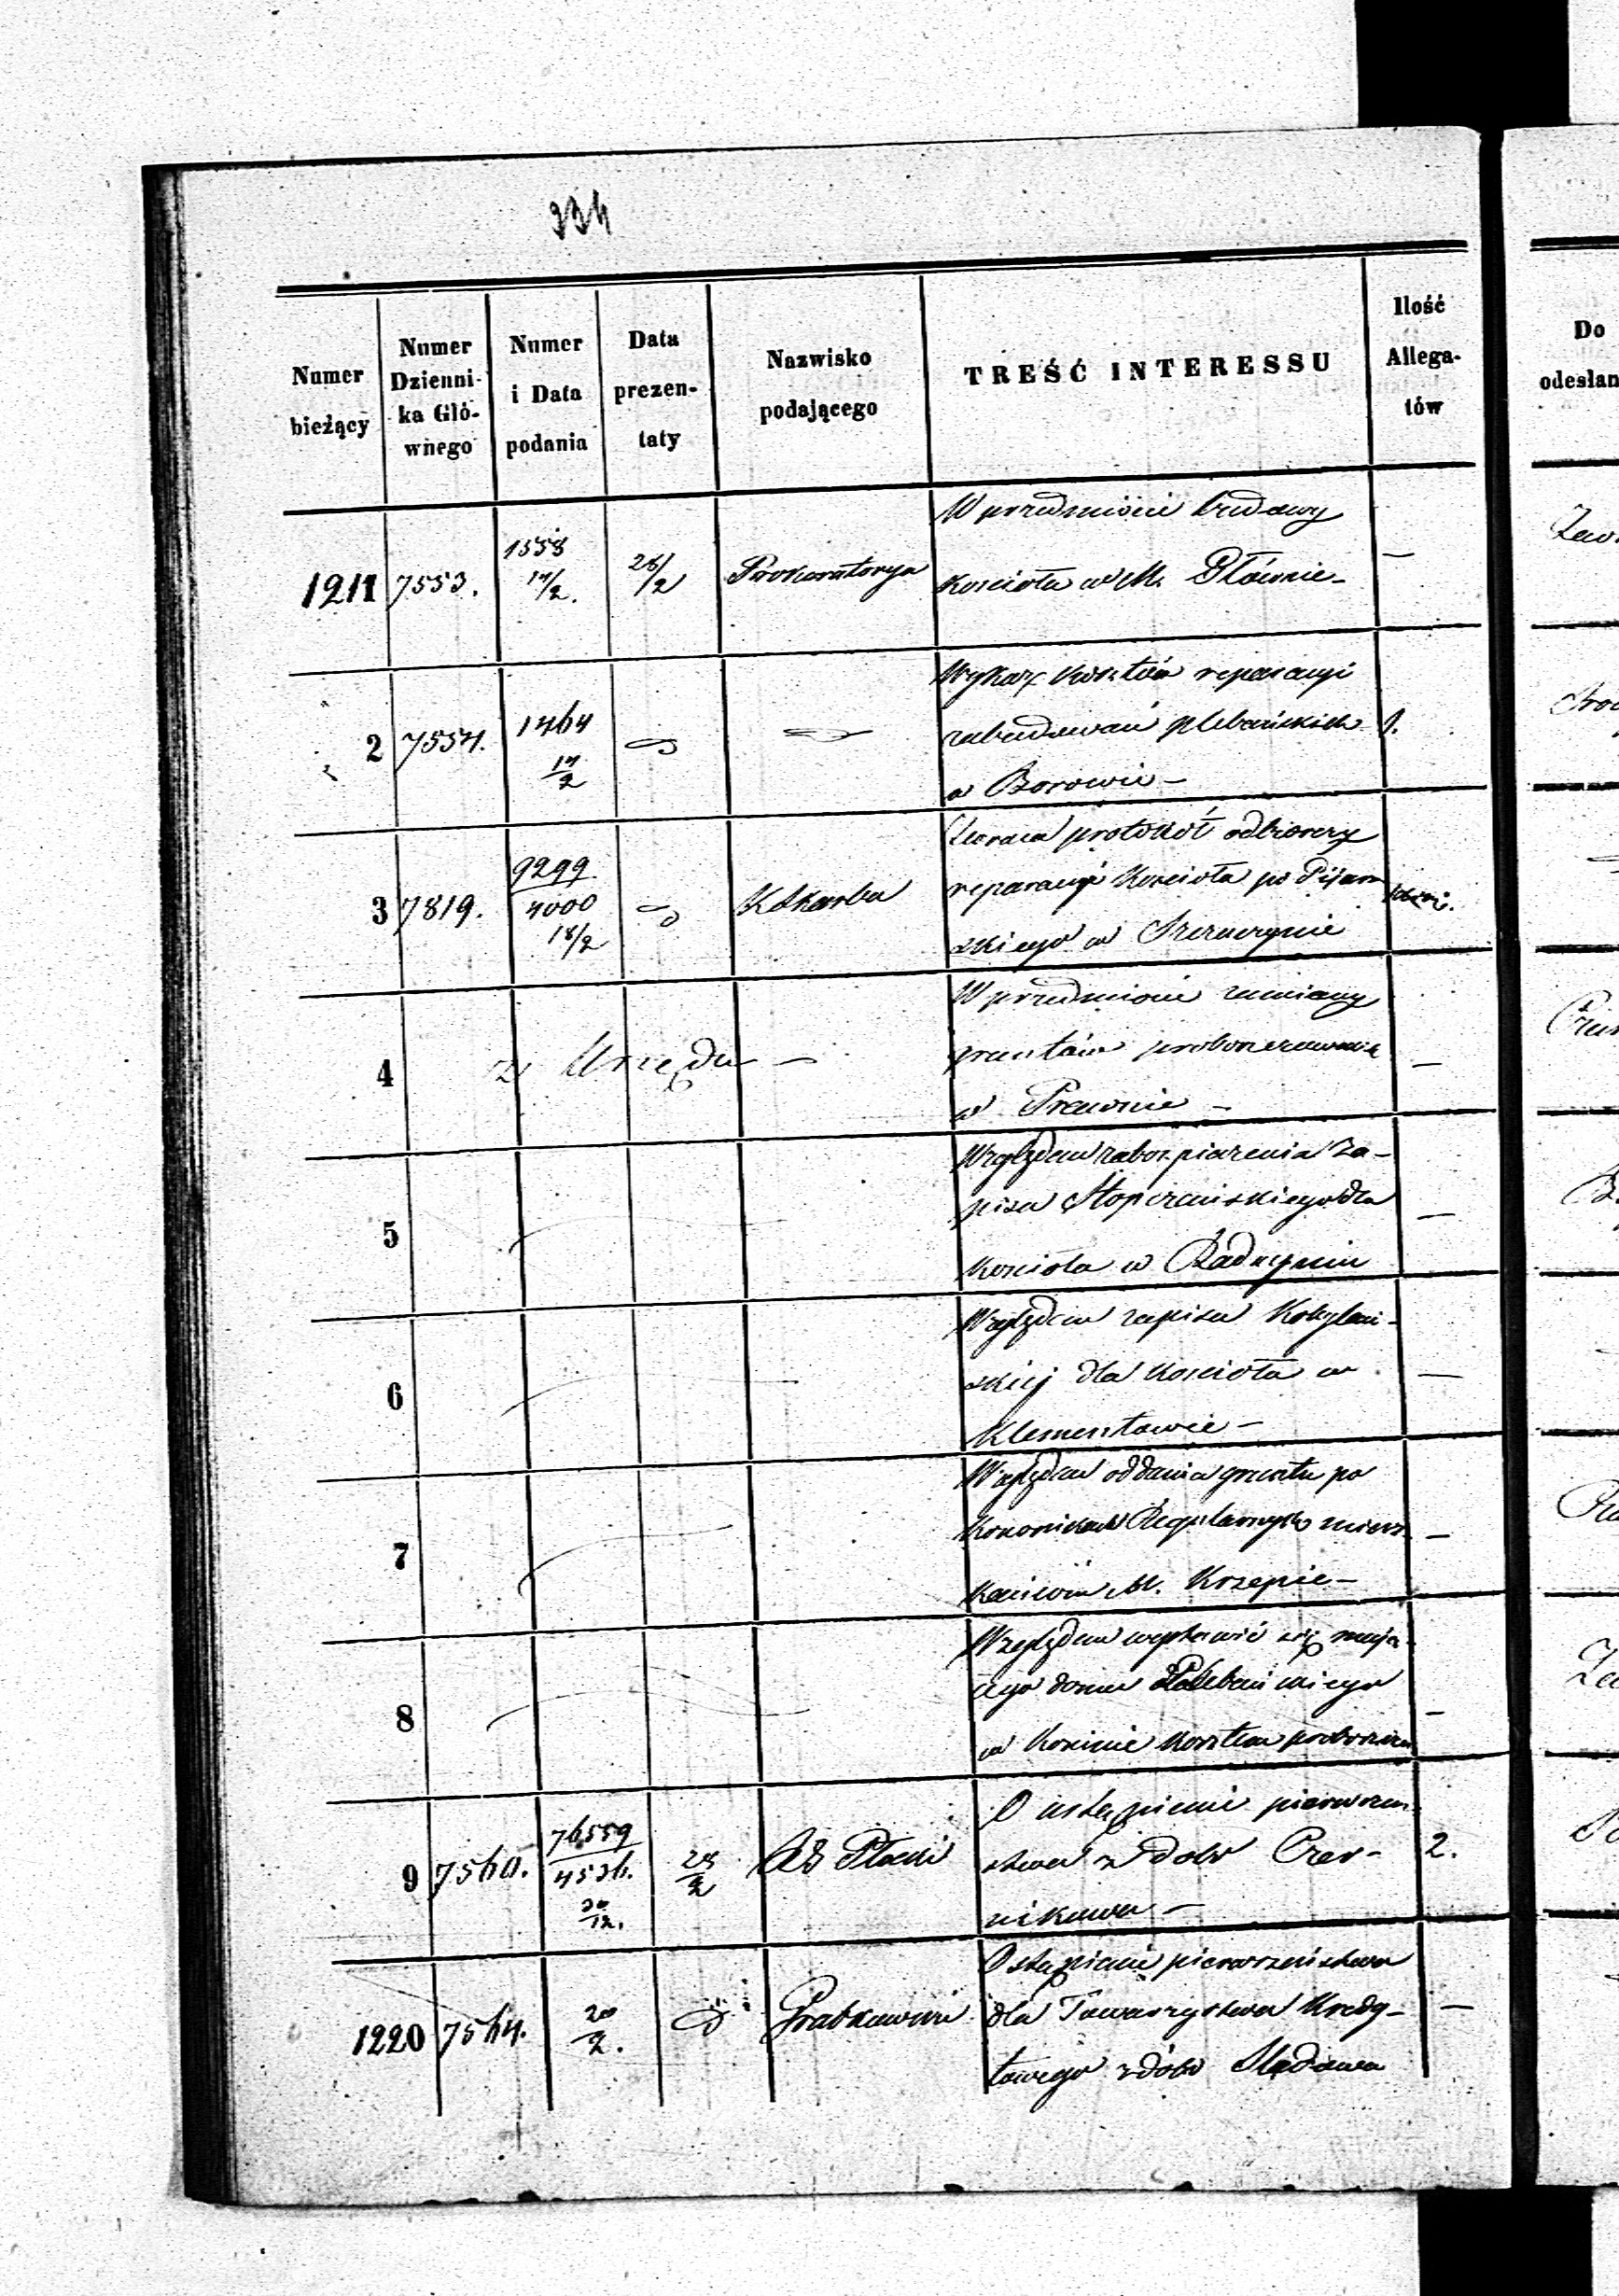 334
Numer bieżący
Numer Dzienni-ka Głó-wnego
Numer i Data podania
Data prezen-taty
Nazwisko podającego
TREŚĆ INTERESSU
Ilość Allega-tów
Do odesłan
1211 7553. 1558 17/2. 28/2 Prokuratorya W przedmiocie budowy
kościoła w M. Głównie - —
2 7554. 1464 17/2 Wykaz kosztów reparacyi
zabudowań plebańskich 1.
w Borowie -
3 7819. 9299/4000 18/2 K Skarbu Zwraca protokół odbiorczy
reparacyi Kościoła po Pijar
skiego w Szczuczynie
4 z Urzędu - W przedmiocie zamiany
gruntów proboszczowskich —
w
5 Względem zabezpieczenia za-
pisu dla —
kościoła w Radzyminie
6 Względem zapisu Kobylań-
skiej dla kościoła w —
Klementowie -
7 Względem oddania gruntu po
Kanonikach Regularnych miesz —
kańcom M. Krzepic -
8 Względem się mają-
cego domu Plebańskiego —
w Koninie kosztem
9 7560. 76559/4536. 30/12. 28/2 RG Płocki O ustąpienie pierwszeń-
stwa z dobr Czer- 2.
nikowa -
1220 7564. 20/2. Grabkowski O stąpienie pierwszeństwa
dla Towarzystwa Kredy- —
towego z dóbr